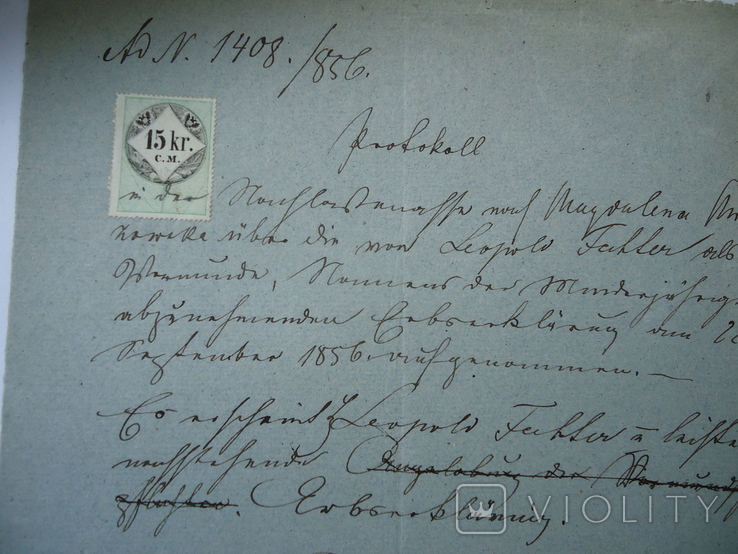 Ad N. 1408./856.
15 kr.
C.M.
Protokoll
in der Nachlassmasse nach Magdalena
über die von Leopold als
Vormunde, Namens der Minderjährig
abzunehmenden Erbserklärung am
September 1856 aufgenommen. —
Es erscheint Leopold
nachstehende Angelobung der Vormund
pflichten. Erbserklärung.
VIOLITY